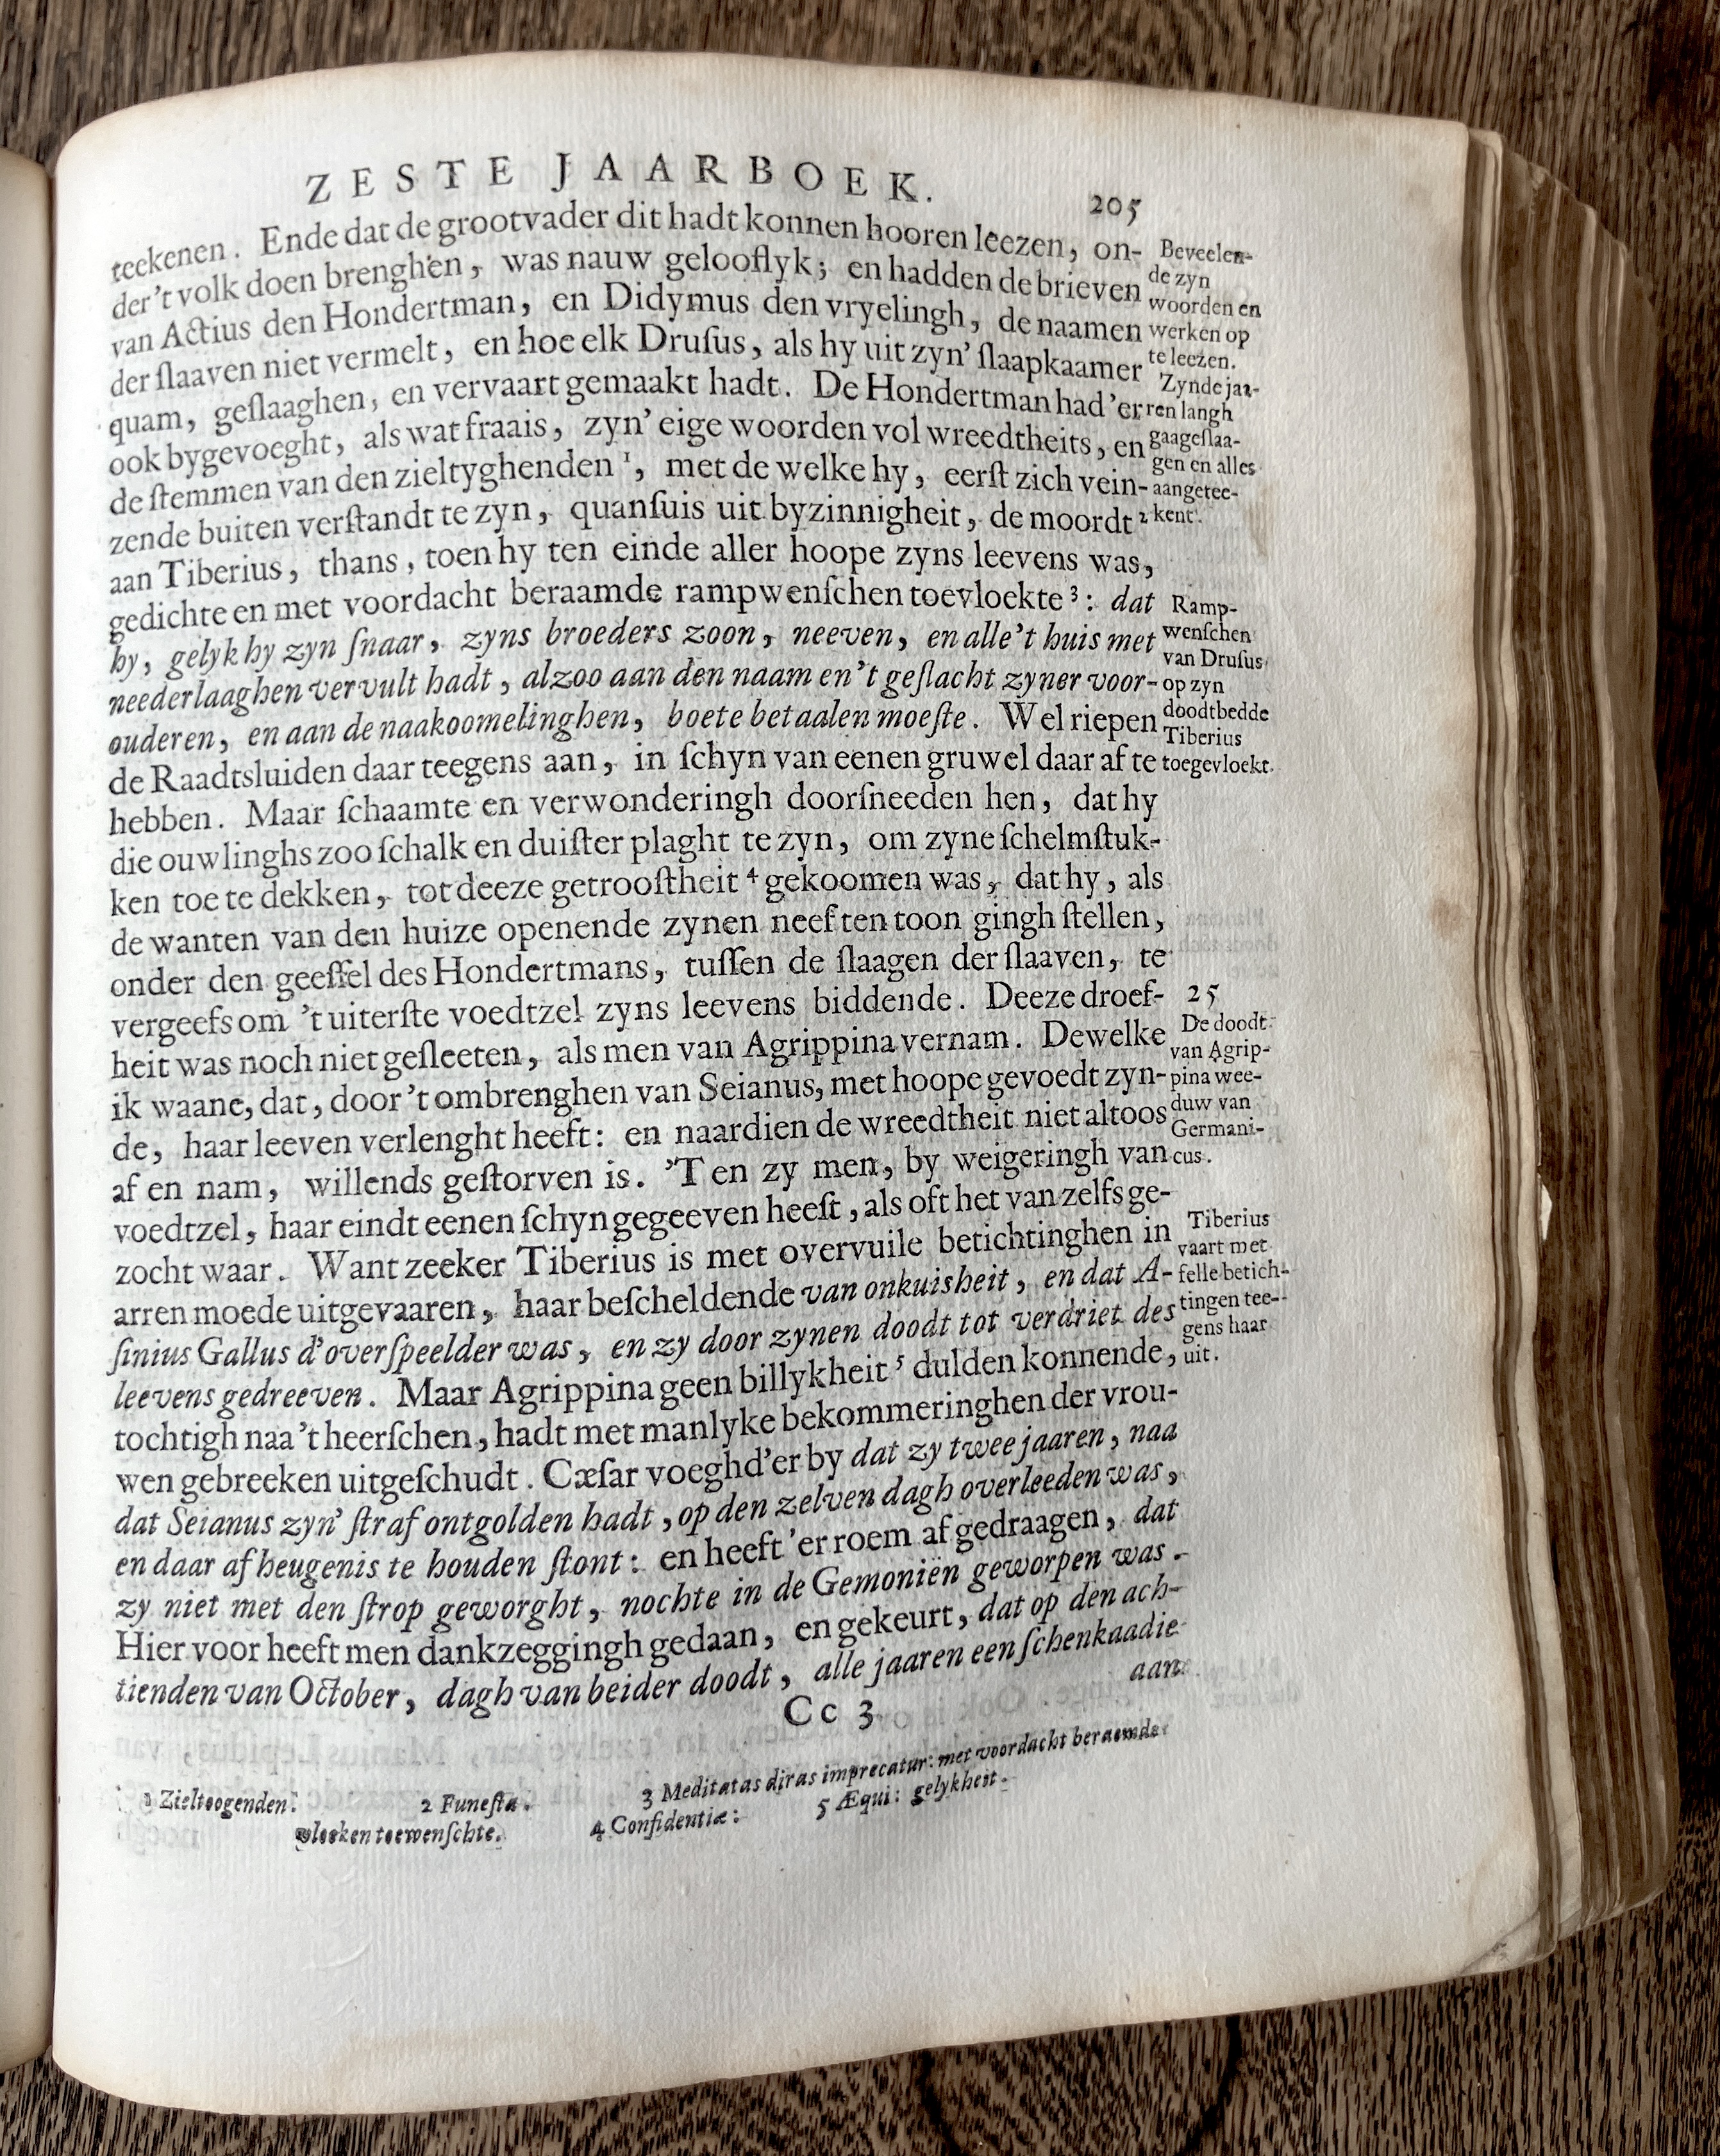 ZESTE JAARBOEK.
205
teekenen. Ende dat de grootvader dit hadt konnen hooren leezen, on-
der 't volk doen brenghen, was nauw gelooflyk; en hadden de brieven
van Actius den Hondertman, en Didymus den vryelingh, de naamen
der ſlaaven niet vermelt, en hoe elk Druſus, als hy uit zyn' ſlaapkaamer
quam, geſlaaghen, en vervaart gemaakt hadt. De Hondertman had'er
ook bygevoeght, als wat fraais, zyn' eige woorden vol wreedtheits, en
de ſtemmen van den zieltyghenden ¹, met de welke hy, eerſt zich vein-
zende buiten verſtandt te zyn, quanſuis uit byzinnigheit, de moordt ²
aan Tiberius, thans, toen hy ten einde aller hoope zyns leevens was,
gedichte en met voordacht beraamde rampwenſchen toevloekte ³: dat
hy, gelyk hy zyn ſnaar, zyns broeders zoon, neeven, en alle 't huis met
neederlaaghen vervult hadt, alzoo aan den naam en 't geſlacht zyner voor-
ouderen, en aan de naakoomelinghen, boete betaalen moeſte. Wel riepen
de Raadtsluiden daar teegens aan, in ſchyn van eenen gruwel daar af te
hebben. Maar ſchaamte en verwonderingh doorſneeden hen, dat hy
die ouwlinghs zoo ſchalk en duiſter plaght te zyn, om zyne ſchelmſtuk-
ken toe te dekken, tot deeze getrooſtheit ⁴ gekoomen was, dat hy, als
de wanten van den huize openende zynen neef ten toon gingh ſtellen,
onder den geeſſel des Hondertmans, tuſſen de ſlaagen der ſlaaven, te
vergeefs om 't uiterſte voedtzel zyns leevens biddende. Deeze droef-
heit was noch niet geſleeten, als men van Agrippina vernam. Dewelke
ik waane, dat, door 't ombrenghen van Seianus, met hoope gevoedt zyn-
de, haar leeven verlenght heeft: en naardien de wreedtheit niet altoos
af en nam, willends geſtorven is. 'T en zy men, by weigeringh van
voedtzel, haar eindt eenen ſchyn gegeeven heeft, als oft het van zelfs ge-
zocht waar. Want zeeker Tiberius is met overvuile betichtinghen in
arren moede uitgevaaren, haar beſcheldende van onkuisheit, en dat A-
ſinius Gallus d'overſpeelder was, en zy door zynen doodt tot verdriet des
leevens gedreeven. Maar Agrippina geen billykheit ⁵ dulden konnende,
tochtigh naa 't heerſchen, hadt met manlyke bekommeringhen der vrou-
wen gebreeken uitgeſchudt. Cæſar voeghd'er by dat zy twee jaaren, naa
dat Seianus zyn' ſtraf ontgolden hadt, op den zelven dagh overleeden was,
en daar af heugenis te houden ſtont: en heeft 'er roem af gedraagen, dat
zy niet met den ſtrop geworght, nochte in de Gemoniën geworpen was.
Hier voor heeft men dankzeggingh gedaan, en gekeurt, dat op den ach-
tienden van October, dagh van beider doodt, alle jaaren een ſchenkaadie
aan
Cc 3
Beveelen-
de zyn
woorden en
werken op
te leezen.
Zynde jaa-
ren langh
gaageſlaa-
gen en alles
aangetee-
kent.
Ramp-
wenſchen
van Druſus
op zyn
doodtbedde
Tiberius
toegevloekt.
25
De doodt
van Agrip-
pina wee-
duw van
Germani-
cus.
Tiberius
vaart met
felle betich-
tingen tee-
gens haar
uit.
1 Zieltoogenden.
2 Funeſta.
3 Meditatas diras imprecatur: met voordacht beraemde
vloeken toewenſchte.
4 Confidentiæ:
5 Æqui: gelykheit.